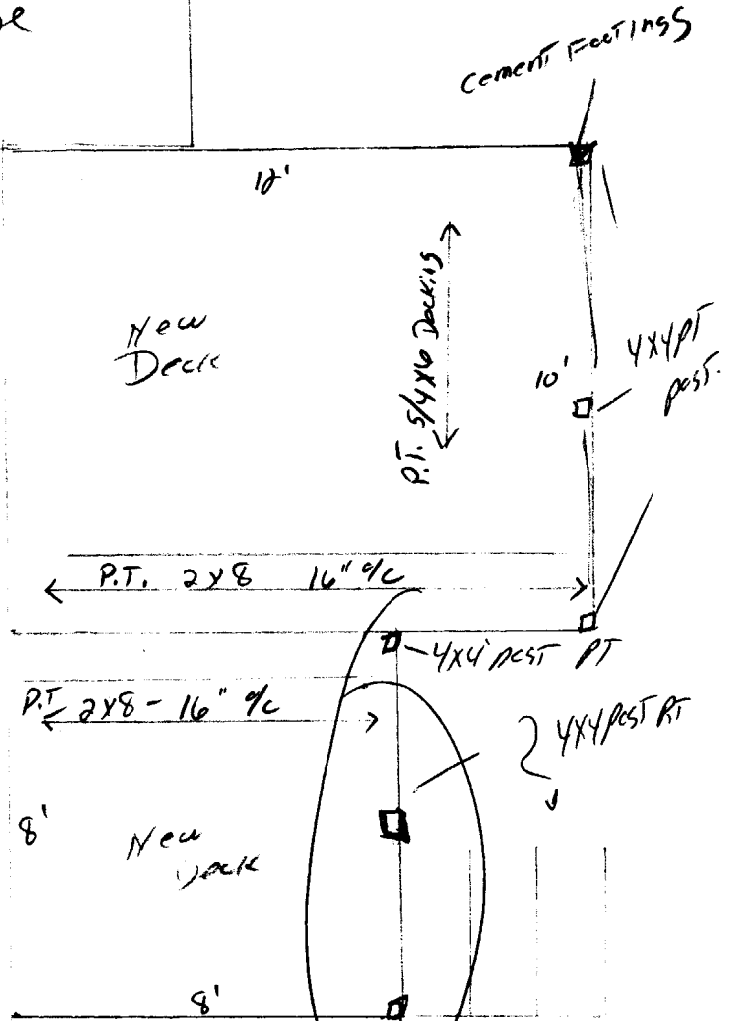 Cement Footings
12'
New
Deck
P.T. 5/4x6 Decking
10'
4x4 PT
post.
P.T. 2x8 16" o/c
4x4 post PT
P.T 2x8 - 16" o/c
4x4 post PT
8'
New
Deck
8'